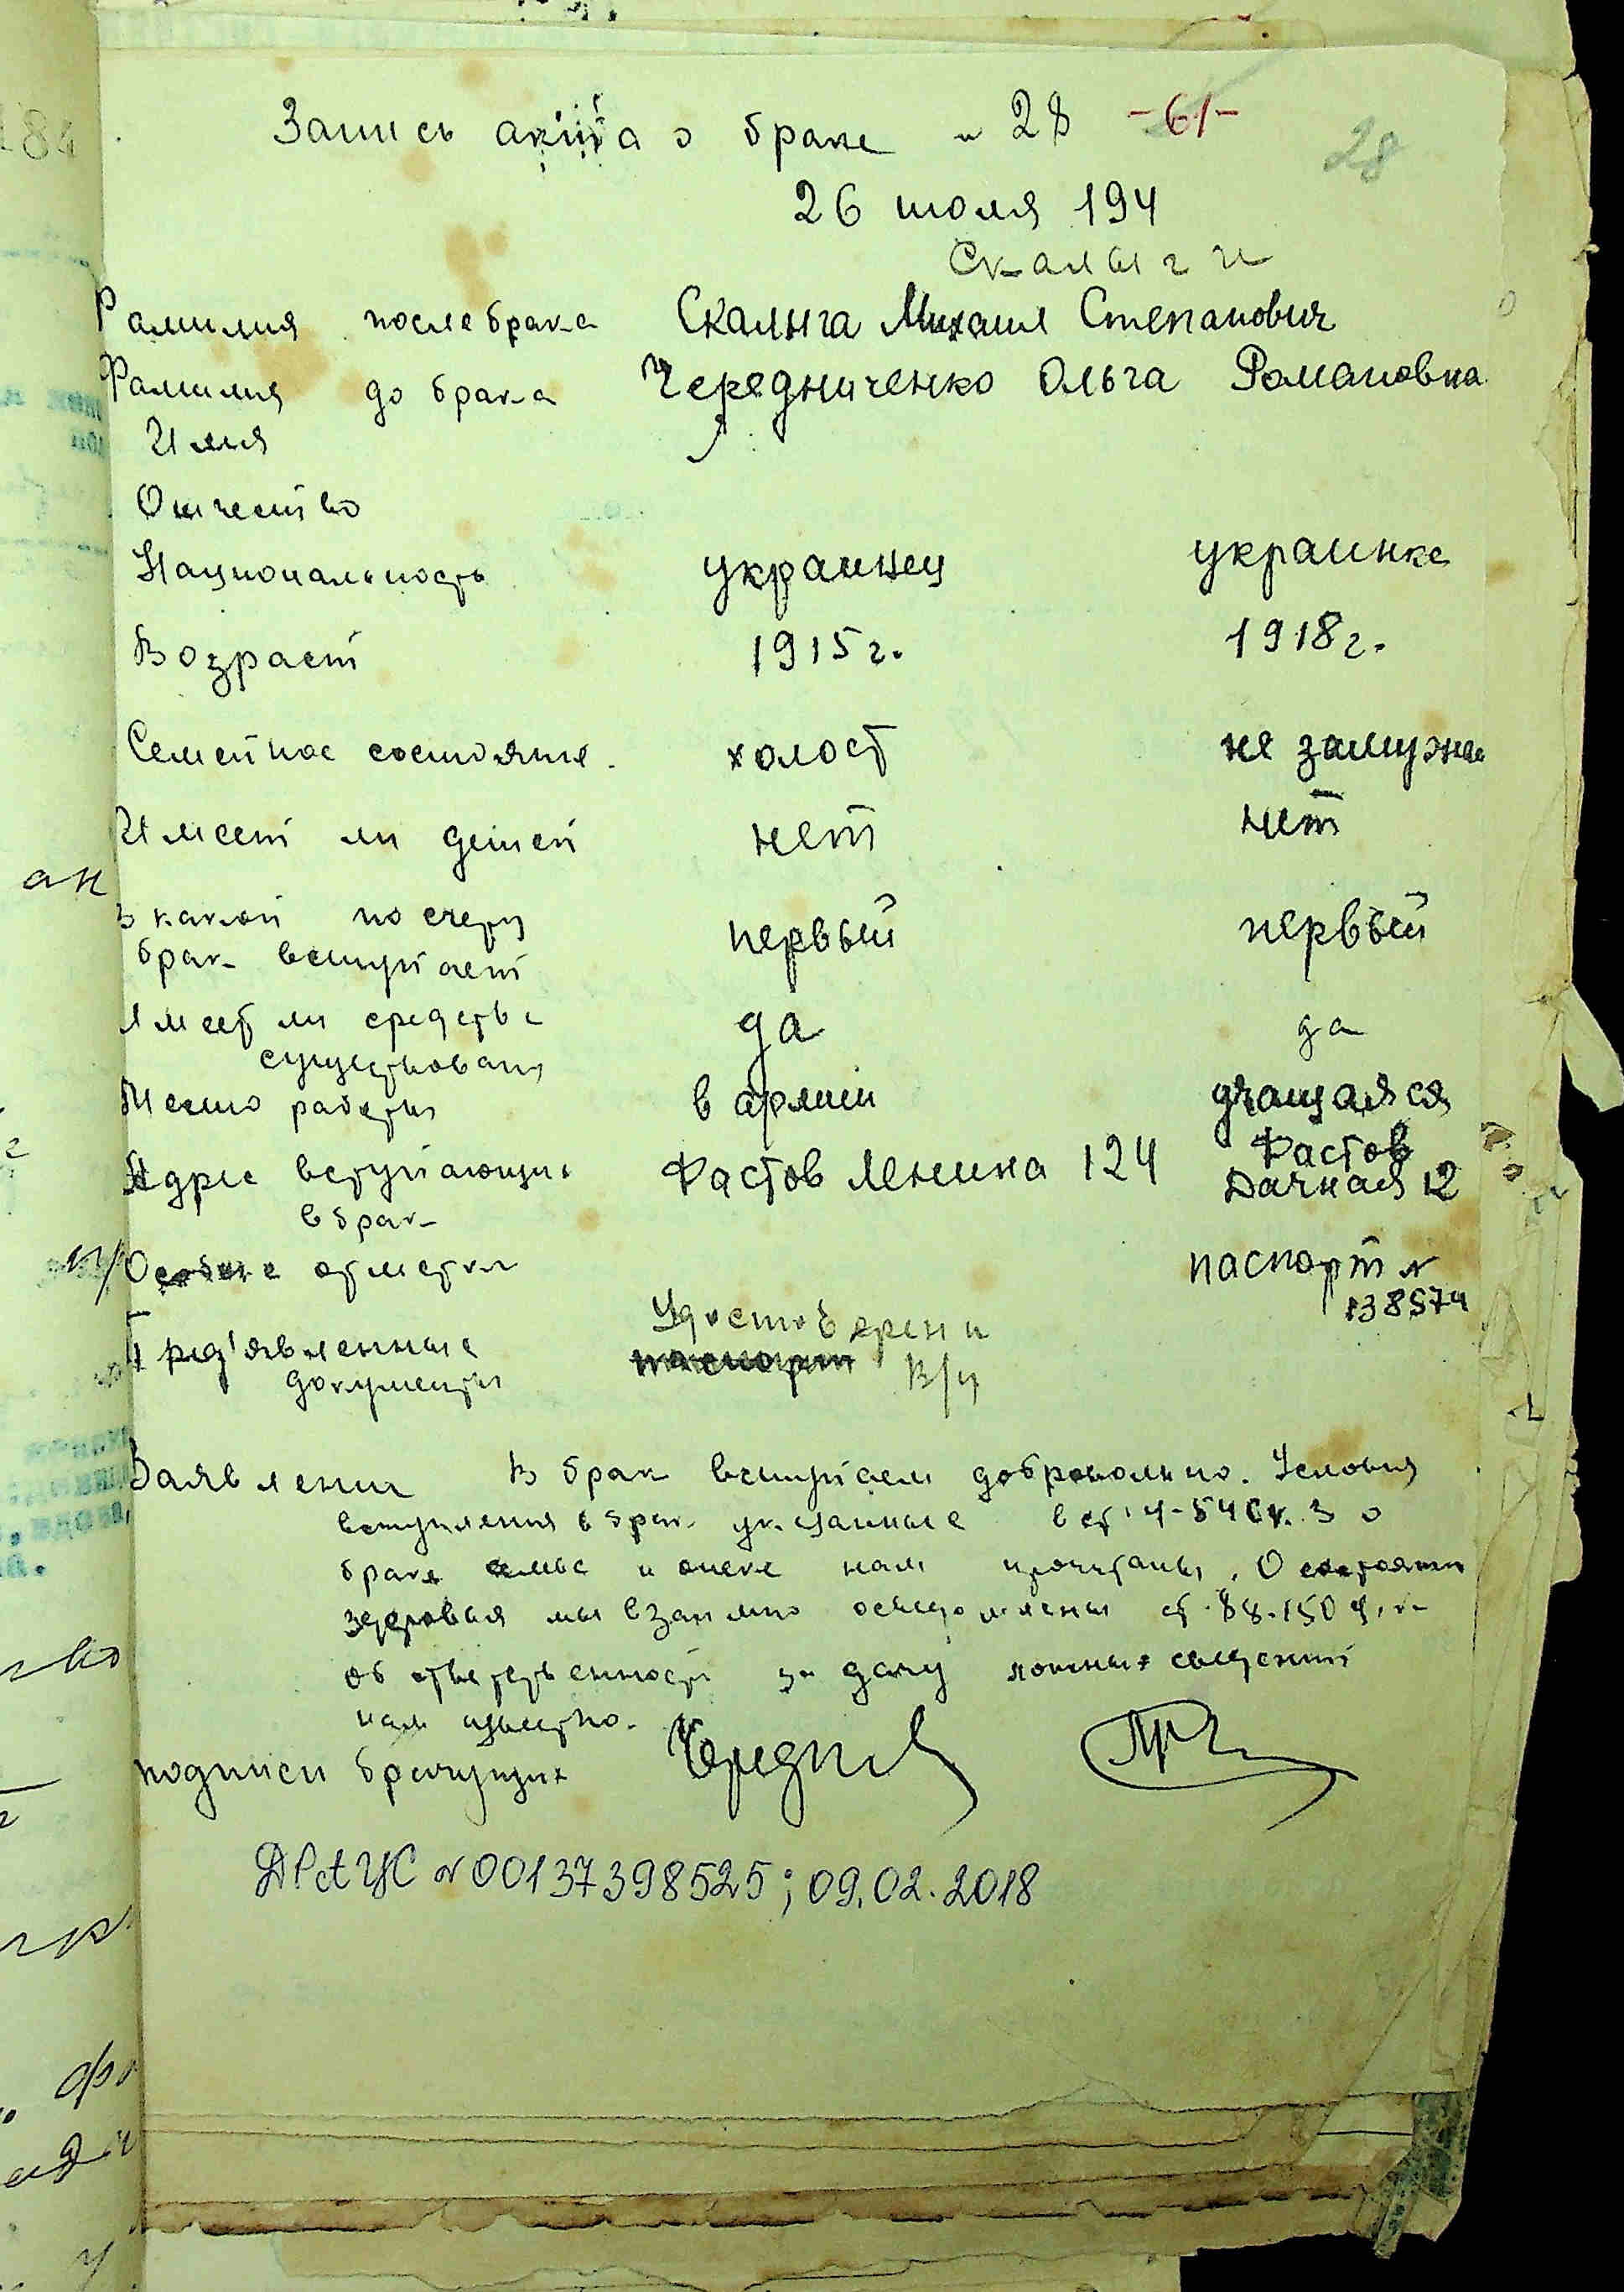 Запись акта о браке н 28 -61- 28
26 июля 194
Скалыги
Фамилия после брака Скалыга Михаил Степанович
Фамилия до брака Чередниченко Ольга Романовна
Имя
Отчество
Национальность украинец украинка
Возраст 1915 г. 1918 г.
Семейное состояние. холост не замужем
Имеет ли детей нет нет
В какой по счету первый первый
брак вступает
Имеет ли средства да да
существования
Место работы в армии учащаяся
Адрес вступающих Фастов Ленина 124 Фастов
в брак Дачная 12
Особые отметки паспорт н
138574
Пред'явленные Удостоверени
документы паспорт В/ч
Заявлении В брак вступаем добровольно. Условия
вступления в брак указанные в ст 4-5 о
браке семье и опеке нам прочитаны. О состоянии
здоровья мы взаимно осведомлены ст. 88-150
об ответственности за дачу ложных сведений
нам известно.
подписи брачущих Чередн
ДРАЦС № 00137398525; 09.02.2018